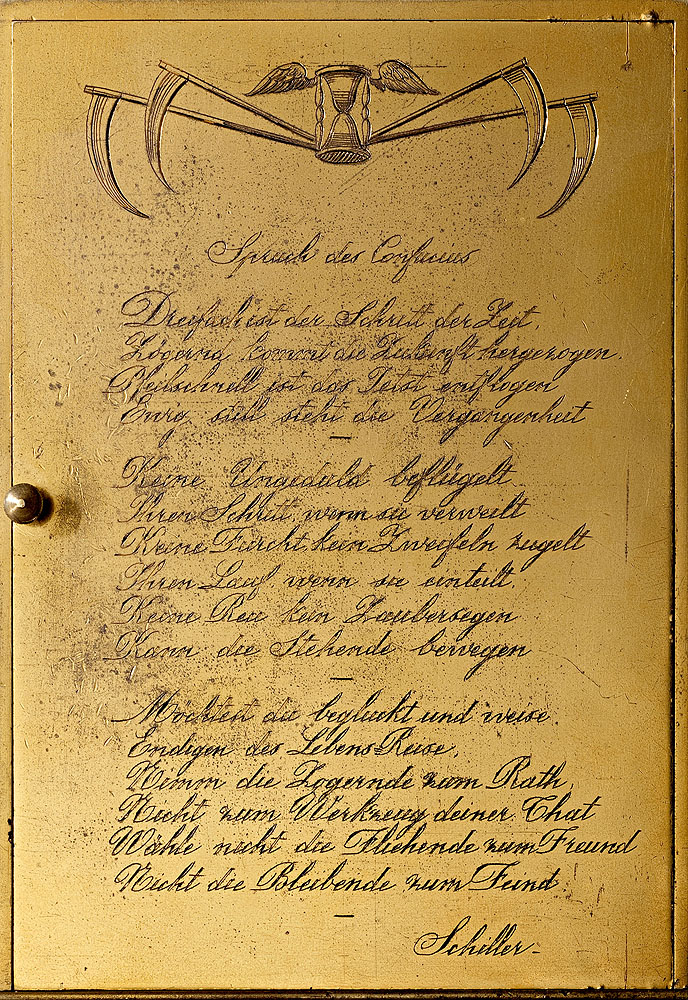 Spruch des Confucius
Dreifach ist der Schritt der Zeit,
Zögernd kommt die Zukunft hergezogen.
Pfeilschnell ist das Jetzt entflogen
Ewig still steht die Vergangenheit
Keine Ungeduld beflügelt
Ihren Schritt, wenn sie verweilt
Keine Furcht, kein Zweifeln zugelt
Ihren Lauf, wenn sie enteilt.
Keine Reu kein Zaubersegen
Kann die Stehende bewegen
Möchtest du beglückt und weise.
Endigen des Lebens Reise,
Nimm die Zogernde zum Rath,
Nicht zum Werkzeug deiner That
Wähle nicht die Fliehende zum Freund
Nicht die Bleibende zum Feind.
Schiller-